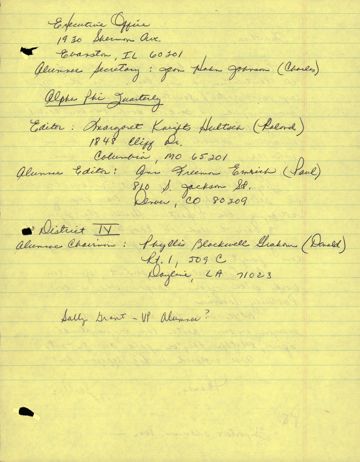 Executive Office
1930 Sherman Ave.
Evanston, IL 60201
Alumnae Secretary : Jeon Hahn Johnson (Charles)
Alpha Phi Quarterly
Editor : Margaret Knights Hultsch (Roland)
1848 Cliff Dr.
Columbia, MO 65201
Alumnae Editor : Ann Freemon Emrich (Paul)
810 S. Jackson St.
Denver, CO 80209
District IV
Alumnae Chairman : Phyllis Blackwell Graham (Donald)
Rt. 1, 209 C
Doyline, LA 71023
Sally Grant - VP Alumnae ?